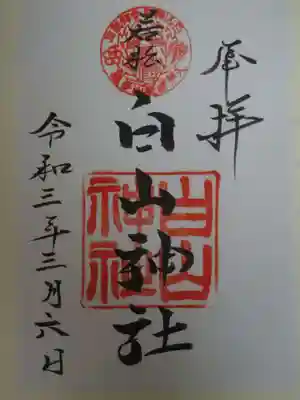 奉拝
若松
白山神社
白山神社
令和三年三月六日